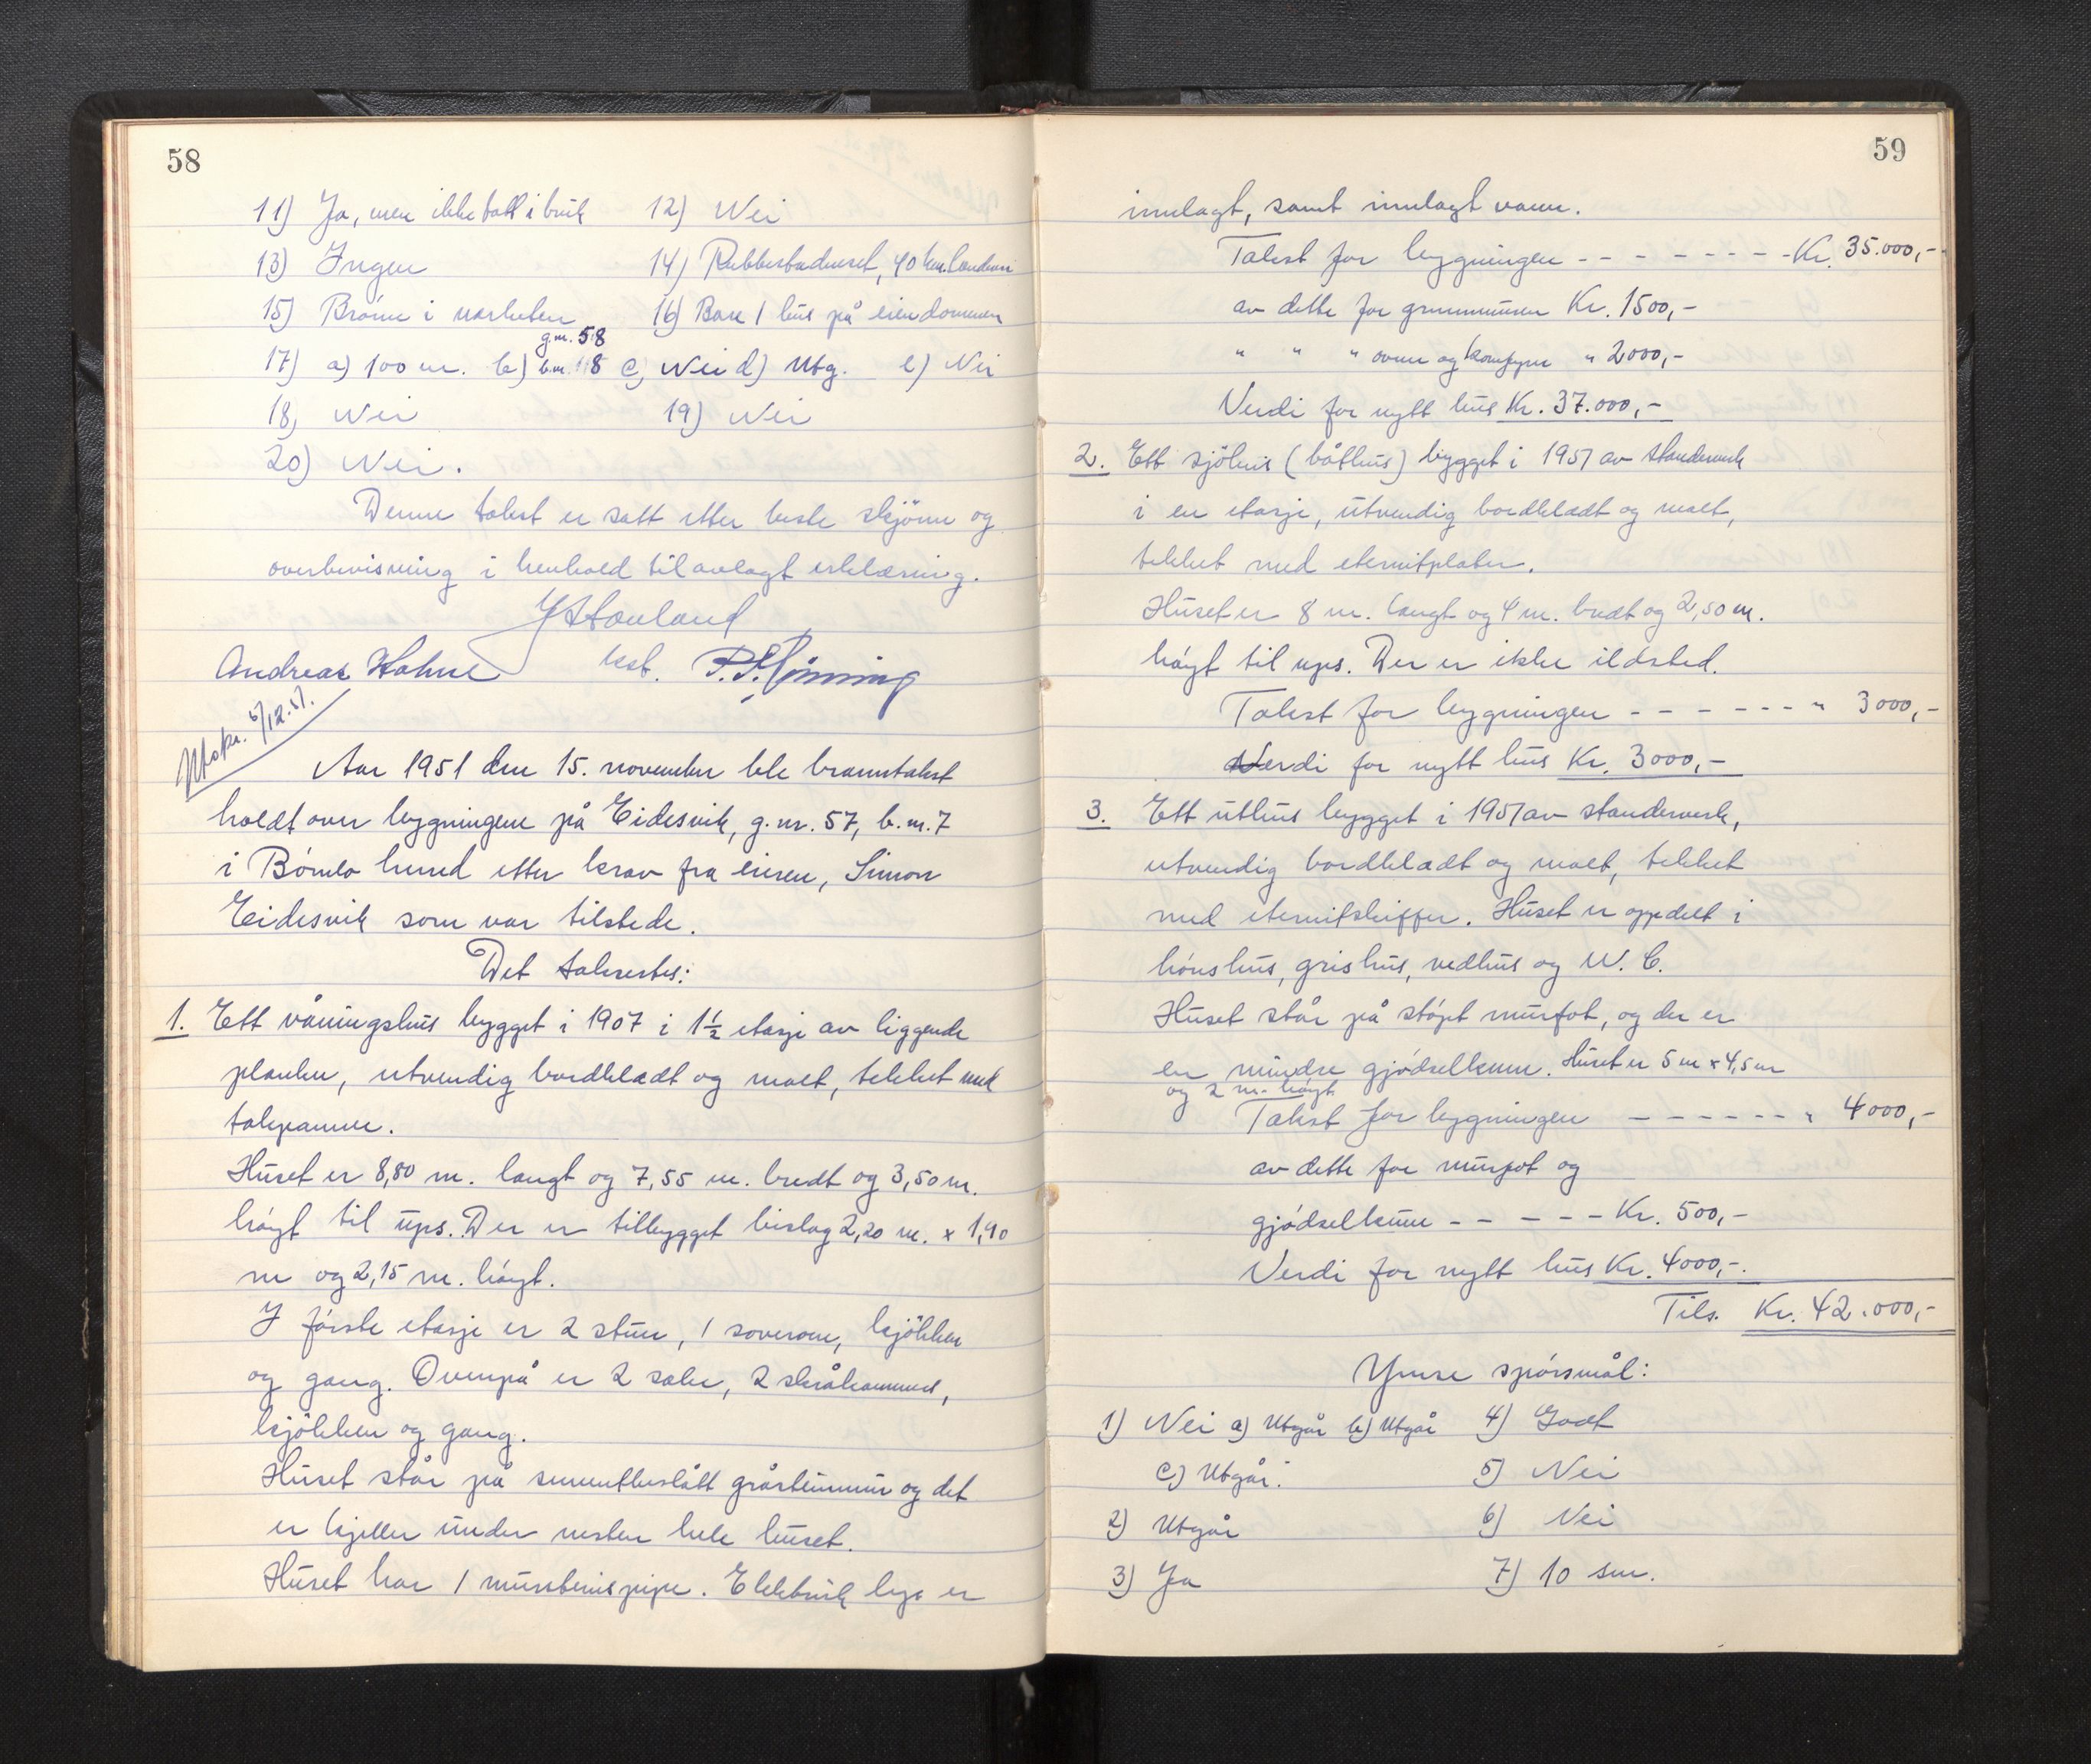 58
11) Ja, men ikke tatt i bruk 12) Nei
13) Ingen 14) Rubbestadneset, 40 km.
15) Brönn i nærheten 16) Bare 1 hus på eiendommen
g.nr. 58
17) a) 100 m. b) b.nr. 118 c) Nei d) Utg. e) Nei
18) Nei 19) Nei
20) Nei.
Denne takst er satt etter beste skjönn og
overbevisning i henhold til avlagt erklæring.
Andreas Hahne
Utskr. 5/12.51.
Aar 1951 den 15. november ble branntakst
holdt over bygningene på Eidesvik, g.nr. 57, b.nr. 7
i Bömlo herred etter krav fra eieren, Simon
Eidesvik som var tilstede.
Det takseres:
1. Ett våningshus bygget i 1907 i 1½ etasje av liggende
planker, utvendig bordkledt og malt, tekket med
takpanner.
Huset er 8,80 m. langt og 7,55 m. bredt og 3,50 m.
höyt til ups. Der er tilbygget bislag 2,20 m. x 1,90
m og 2,15 m. höyt.
I förste etasje er 2 stuer, 1 soverom, kjökken
og gang. Ovenpå er 2 saler, 2 skråkammers,
kjökken og gang.
Huset står på sementbeslått gråsteinmur og det
er kjeller under nesten hele huset.
Huset har 1 mursteinspipe. Elektrisk lys er
59
innlagt, samt innlagt vann.
Takst for bygningen - - - - - - - Kr. 35.000,-
av dette for grunnmuren Kr. 1500,-
" " " ovner og komfyrer " 2000,-
Verdi for nytt hus Kr. 37.000,-
2. Ett sjöhus (båthus) bygget i 1951 av standerverk
i en etasje, utvendig bordkledt og malt,
tekket med eternitplater.
Huset er 8 m. langt og 4 m. bredt og 2,50 m.
höyt til ups. Der er ikke ildsted.
Takst for bygningen - - - - - - " 3000,-
Verdi for nytt hus Kr. 3000,-
3. Ett uthus bygget i 1951 av standerverk,
utvendig bordkledt og malt, tekket
med eternitskiffer. Huset er oppdelt i
hönshus, grishus, vedhus og W.C.
Huset står på stöpt murfot, og der er
en mindre gjödselkum. Huset er 5 m x 4,5 m
og 2 m. höyt
Takst for bygningen - - - - - - " 4000,-
av dette for murfot og
gjödselkum - - - - - Kr. 500,-
Verdi for nytt hus Kr. 4000,-.
Tils. Kr. 42.000,-
Ymse spörsmål:
1) Nei a) Utgår b) Utgår 4) Godt
c) Utgår. 5) Nei
2) Utgår 6) Nei
3) Ja 7) 10 sm.